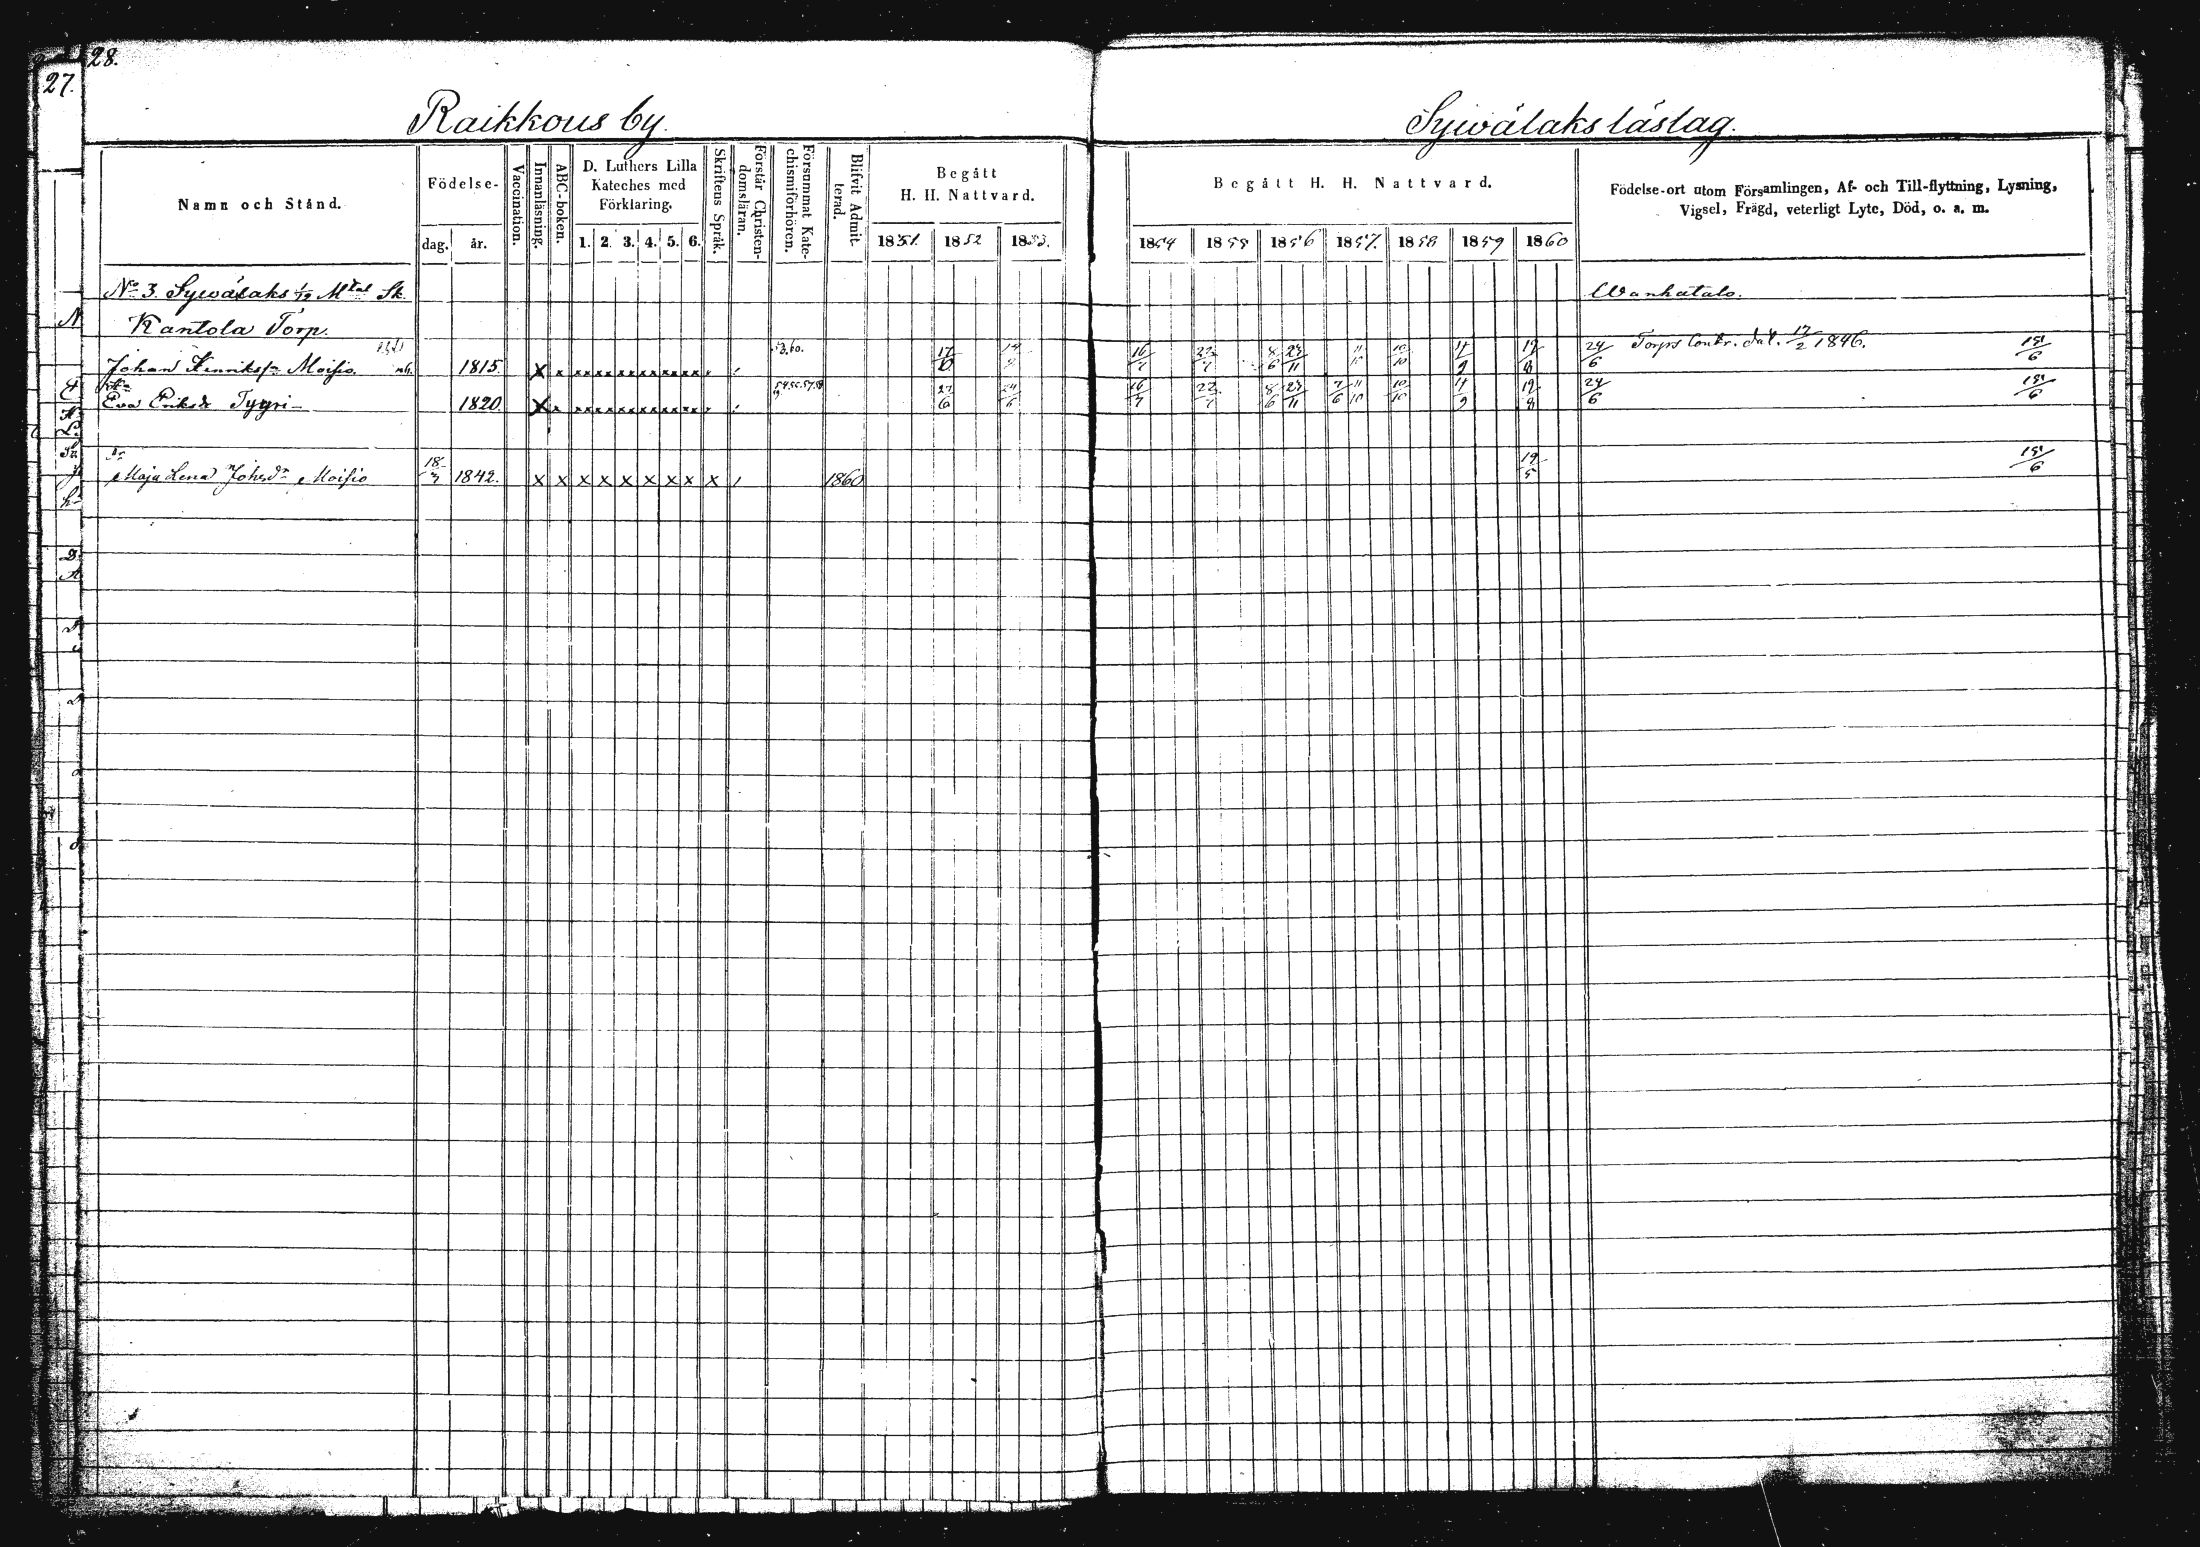 28.
27.
Raikkous by.
Sywälaks läslag.
Namn och Stånd.
Födelse-
dag. år.
Vaccination.
Innanläsning.
ABC-boken.
D. Luthers Lilla
Kateches med
Förklaring.
1. 2. 3. 4. 5. 6.
Skriftens Språk.
Förstår Christen-
domsläran.
Försummat Kate-
chismiförhören.
Blifvit Admit-
terad.
Begått
H. H. Nattvard.
1851. 1852 1853.
Begått H. H. Nattvard.
1854 1855 1856 1857. 1858 1859 1860
Födelse-ort utom Församlingen, Af- och Till-flyttning, Lysning,
Vigsel, Frägd, veterligt Lyte, Död, o. a. m.
No 3. Sywälaks 1/12 Mtal Sk. Wanhatalo.
Kantola Torp.
Johan Henrikss. Moisio. 1815 x x 53.60. 17/10 16/7 22/7 8/6 23/11 10/10 4/9 19/8 24/6 Torps Contr. dat. 17/2 1846.
Eva Eriksdr Tygri 1820. x x 27/6 16/7 22/7 8/6 23/11 7/6 11/10 10/10 4/9 19/8 24/6
Maja Lena Johsdr Moisio 18/3 1842. x x x x x x x x x 1860 19/5